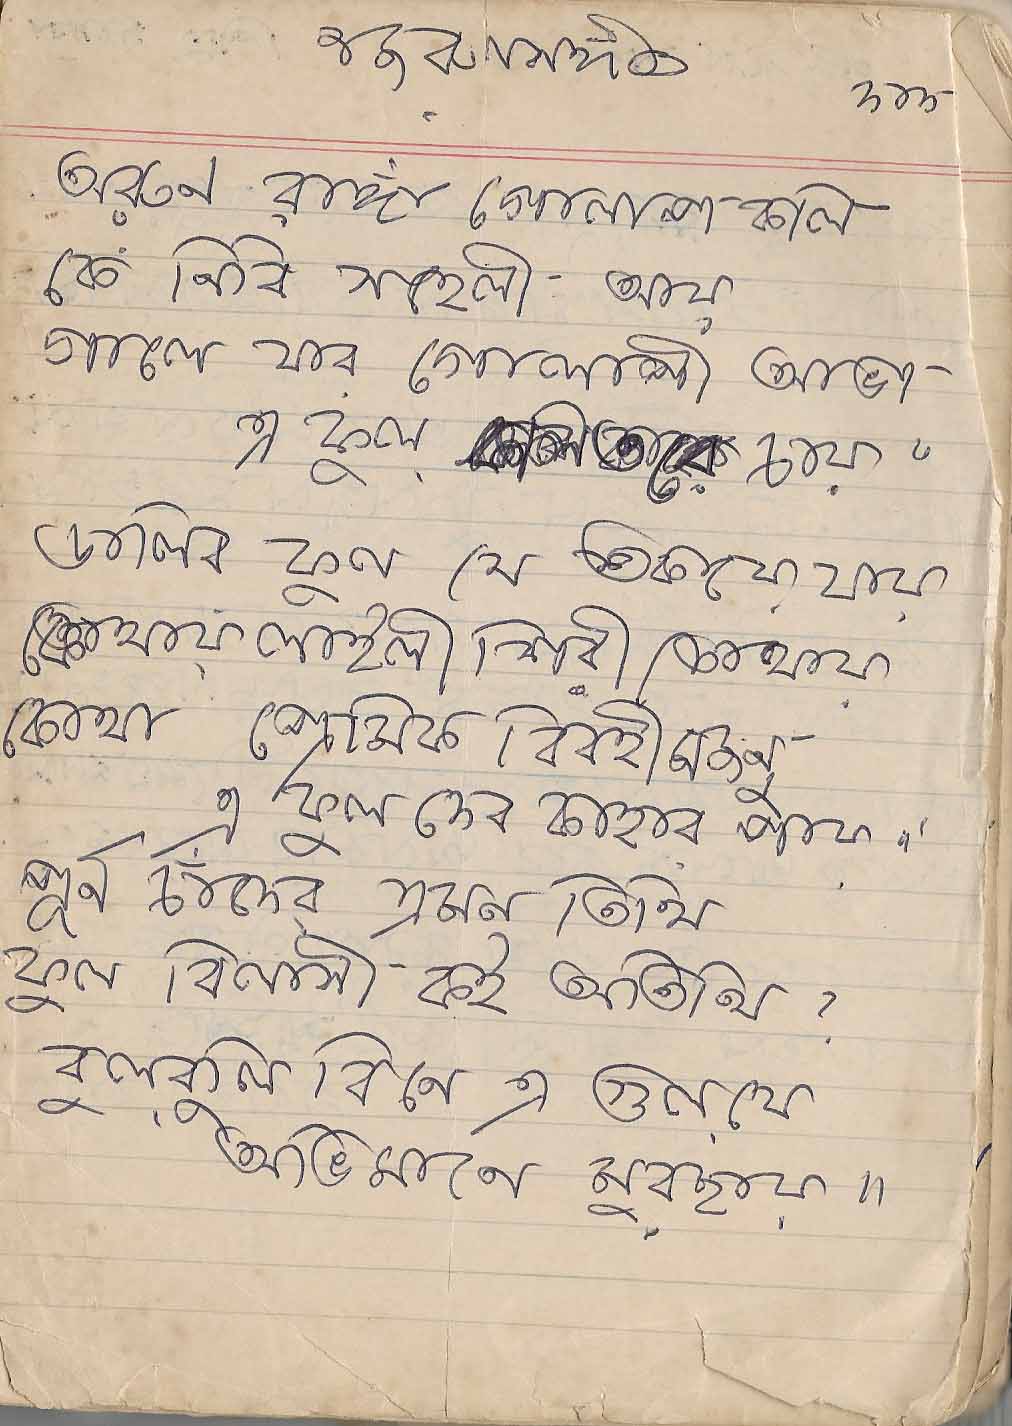 নজরুলগীতি
অরুণ রাঙ্গা গোলাপ কলি
কে নিবি সহেলী আয়
গালে যার গোলাপী আভা
এ ফুল কলি তারে চায়॥
ডালির ফুল যে শুকায়ে যায়
কোথায় লাইলী শিরী কোথায়
কোথা প্রেমিক বিরহী মজনু
এ ফুল দেব কাহার পায়॥
পূর্ন চাঁদের এমন তিথি
ফুল বিলাসী কই অতিথি?
বুলবুলি বিনে এ গুল্ যে
অভিমানে মুরছায়॥